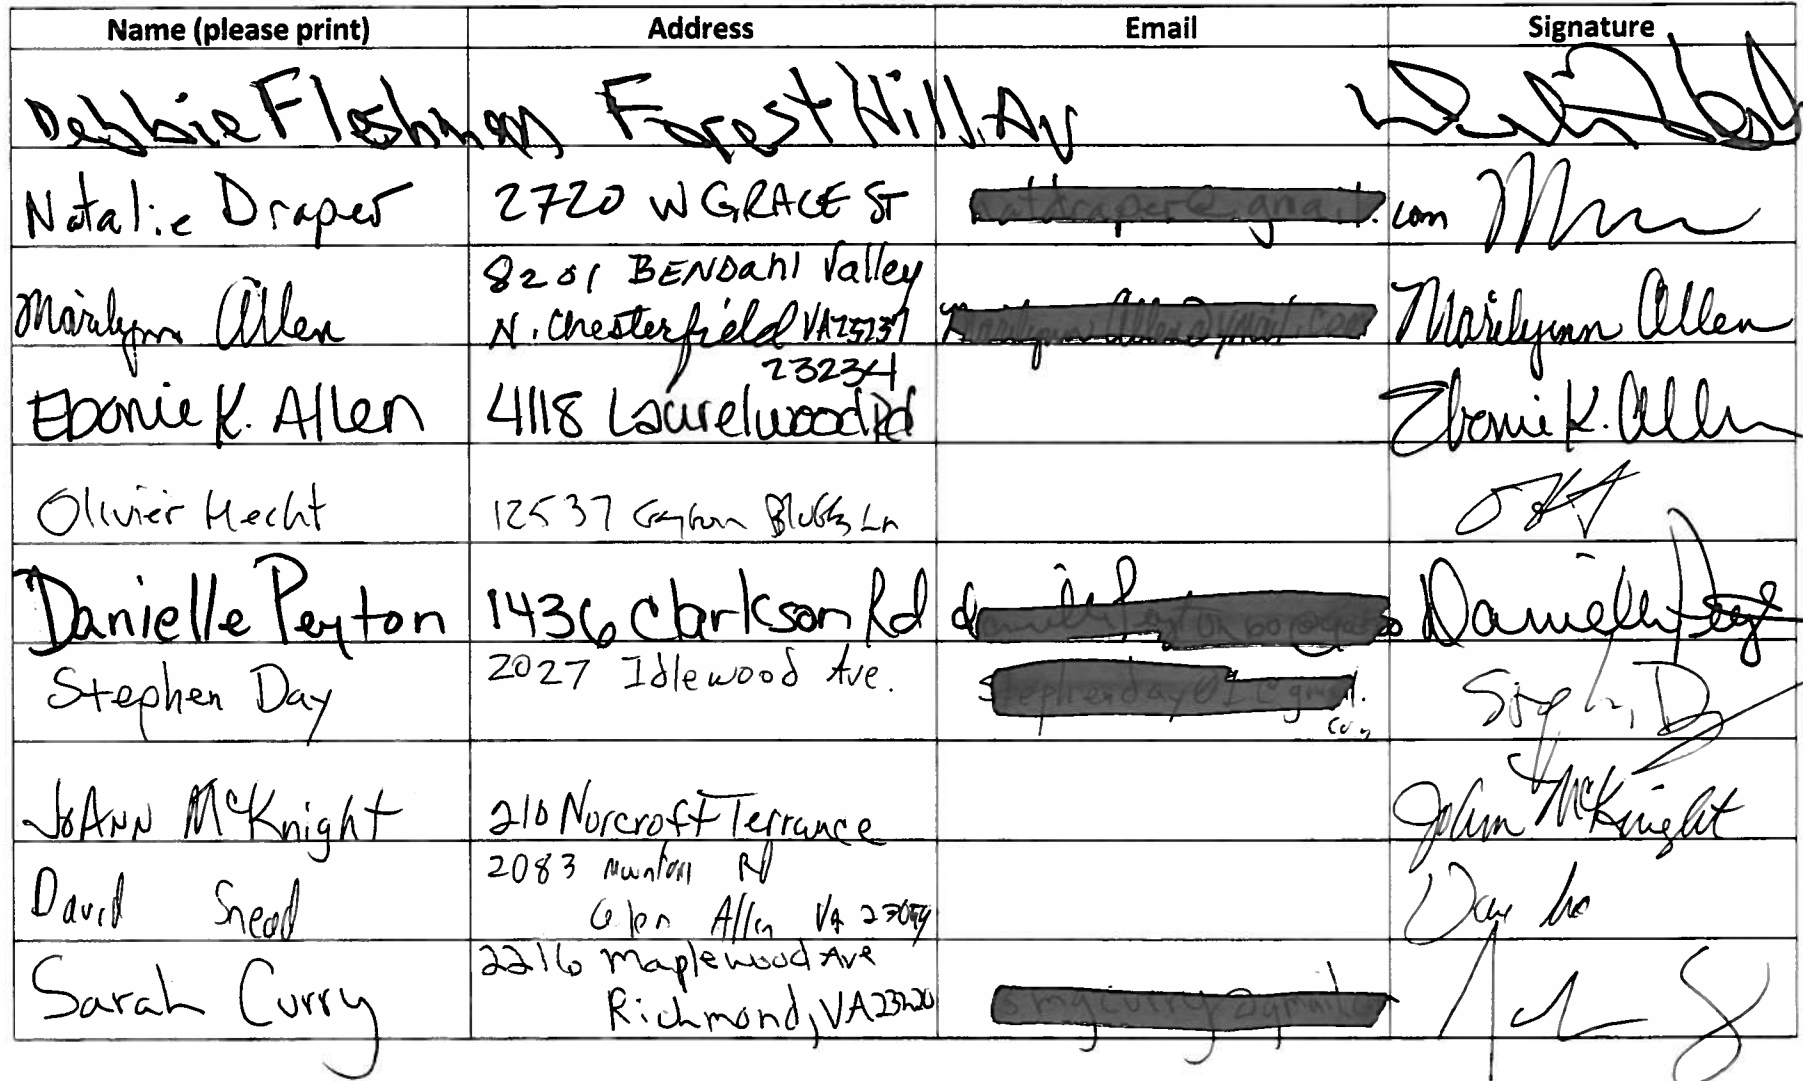 Name (please print) Address Email Signature
Debbie Fleshman Forest Hill Av
Natalie Draper 2720 W GRACE ST .com
8201 BENDahl Valley
Marilynn Allen N. Chesterfield VA 23237 Marilynn Allen
23234
Ebonie K. Allen 4118 Laurelwood Rd Ebonie K. Allen
Olivier Hecht 12537 Gayton Bluffs Ln
Danielle Peyton 1436 Clarkson Rd Danielle
Stephen Day 2027 Idlewood Ave.
JoANN McKnight 210 Norcroft Terrance JoAnn McKnight
2083 Rd
David Snead Glen Allen VA
2216 Maplewood Ave
Sarah Curry Richmond, VA 23220